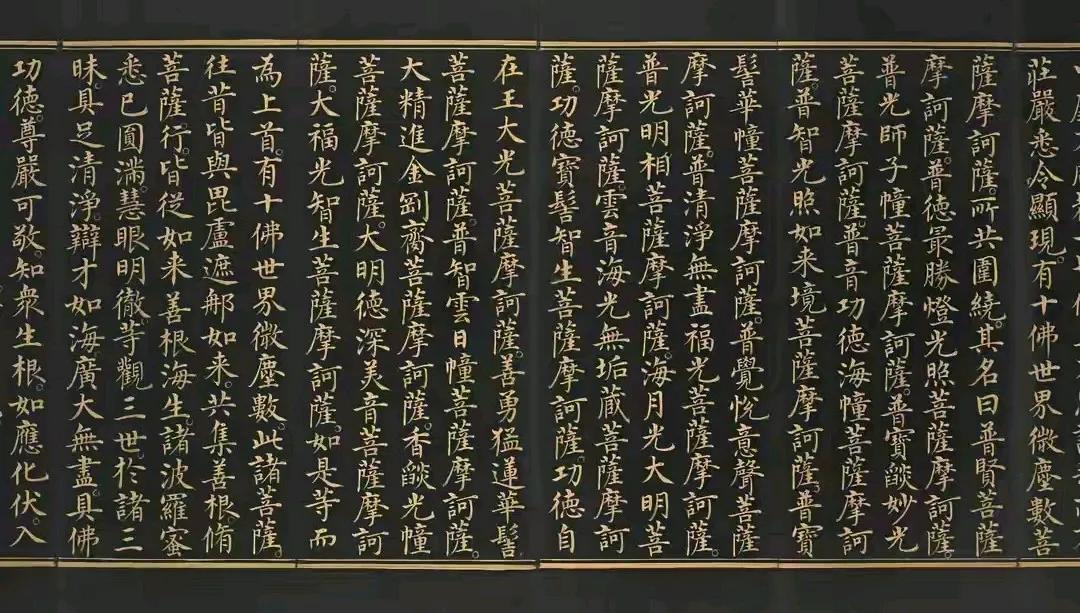 莊嚴悉令顯現。有十佛世界微塵數菩
薩摩訶薩。所共圍繞。其名曰普賢菩薩
摩訶薩。普德最勝燈光照菩薩摩訶薩。
普光師子幢菩薩摩訶薩。普寶燄妙光
菩薩摩訶薩。普音功德海幢菩薩摩訶
薩。普智光照如来境菩薩摩訶薩。普寶
髻華幢菩薩摩訶薩。普覺悅意聲菩薩
摩訶薩。普清淨無盡福光菩薩摩訶薩。
普光明相菩薩摩訶薩。海月光大明菩
薩摩訶薩。雲音海光無垢藏菩薩摩訶
薩。功德寶髻智生菩薩摩訶薩。功德自
在王大光菩薩摩訶薩。善勇猛蓮華髻
菩薩摩訶薩。普智雲日幢菩薩摩訶薩。
大精進金剛齎菩薩摩訶薩。香燄光幢
菩薩摩訶薩。大明德深美音菩薩摩訶
薩。大福光智生菩薩摩訶薩。如是等而
為上首。有十佛世界微塵數。此諸菩薩。
往昔皆與毘盧遮那如来。共集善根。脩
菩薩行。皆從如来善根海生。諸波羅蜜
悉已圓滿。慧眼明徹。等觀三世。於諸三
昧。具足清淨。辯才如海。廣大無盡。具佛
功德。尊嚴可敬。知衆生根。如應化伏。入